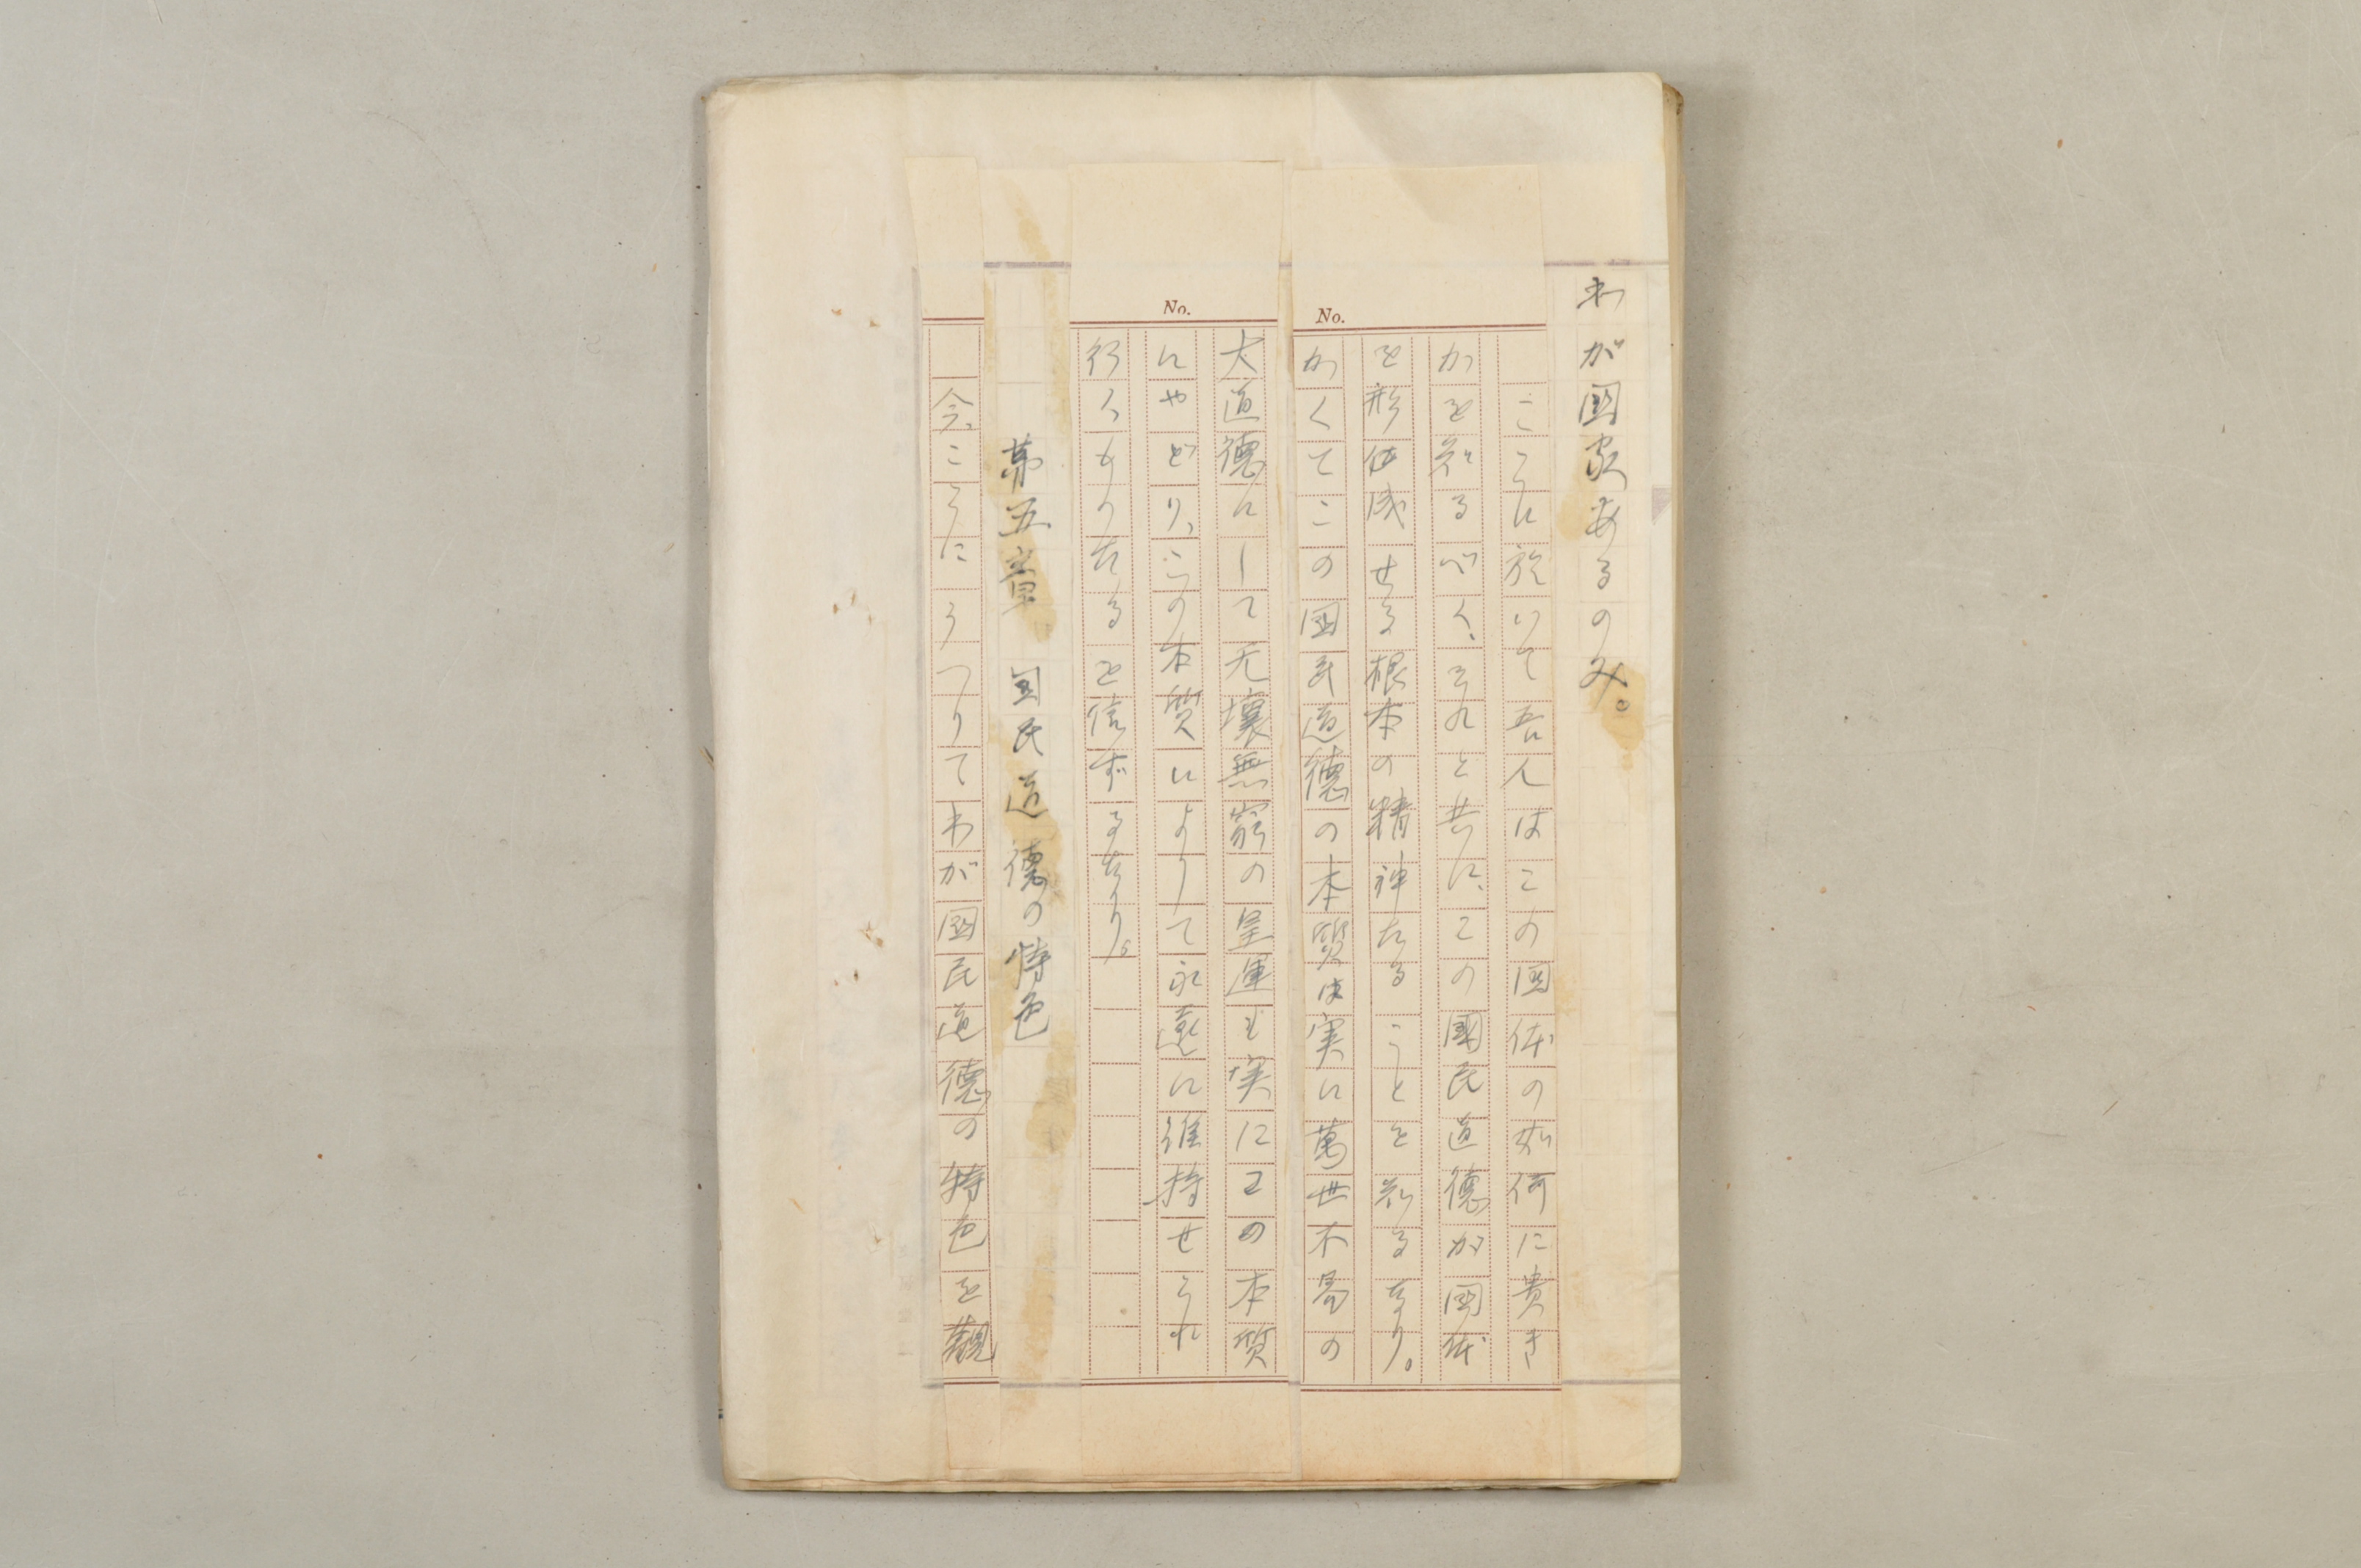 わが國家あるのみ。
No.
こゝに於いて吾人はこの国体の如何に貴き
かを知るべく、それと共に、この國民道德が国体
を形体成せる根本の精神たることを知るなり。
No.
かくてこの国民道德の本質は実に萬世不易の
大道德にして无壞無窮の皇運も実にこの本質
にやどり、この本質によりて永遠に維持せられ
行くものたるを信ずるなり。
第五章 国民道德の特色
今、こゝにうつりてわが國民道德の特色を觀